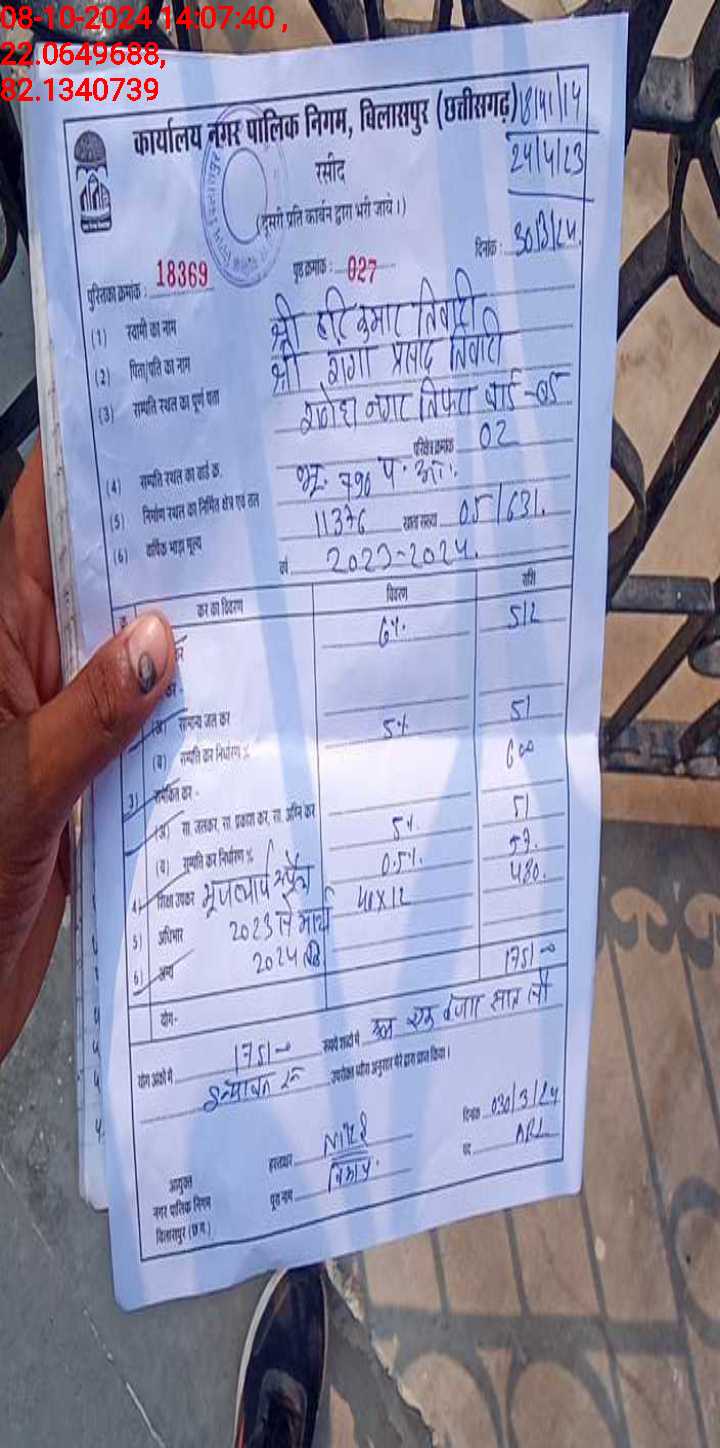 08-10-2024 14:07:40 ,
22.0649688,
82.1340739
कार्यालय नगर पालिक निगम, बिलासपुर (छत्तीसगढ़)
24/4/23
रसीद
(दूसरी प्रति कार्बन द्वारा भरी जावे।)
दिनांक : 30/3/24
पुस्तिका क्रमांक : 18369 पृष्ठ क्रमांक : 027
(1) स्वामी का नाम श्री हरि कुमार तिवारी
(2) पिता/पति का नाम श्री गंगा प्रसाद तिवारी
(3) सम्पत्ति स्थल का पूर्ण पता गणेश नगर तिफरा वार्ड -05
(4) सम्पत्ति स्थल का वार्ड क्र. परिक्षेत्र क्रमांक 02
(5) निर्माण स्थल का निर्मित क्षेत्र एवं तल भू. 790 प.
(6) वार्षिक भाड़ा मूल्य 11376 खाता संख्या 05/631.
वर्ष 2023-2024.
कर का विवरण विवरण राशि
6%. 512
कर
कर -
(अ) सामान्य जल कर 5% 51
(ब) सम्पत्ति कर निर्धारण % 600
3) समेकित कर -
(अ) सा. जलकर, सा. प्रकाश कर, सा. अग्नि कर 5%. 51
(ब) सम्पत्ति कर निर्धारण % 0.5%. 57.
4) शिक्षा उपकर 40x12 480.
5) अधिभार 2023 से मार्च
6) अन्य 2024 तक
योग- 1751-00
योग अंकों में 1751-00 रूपये शब्दों में एक हजार सात सौ
इन्यावन रू उपरोक्त योग अनुसार मेरे द्वारा प्राप्त किया।
दिनांक 030/3/24
हस्ताक्षर
पद ARI
आयुक्त
नगर पालिक निगम पूरा नाम
बिलासपुर (छ.ग.)